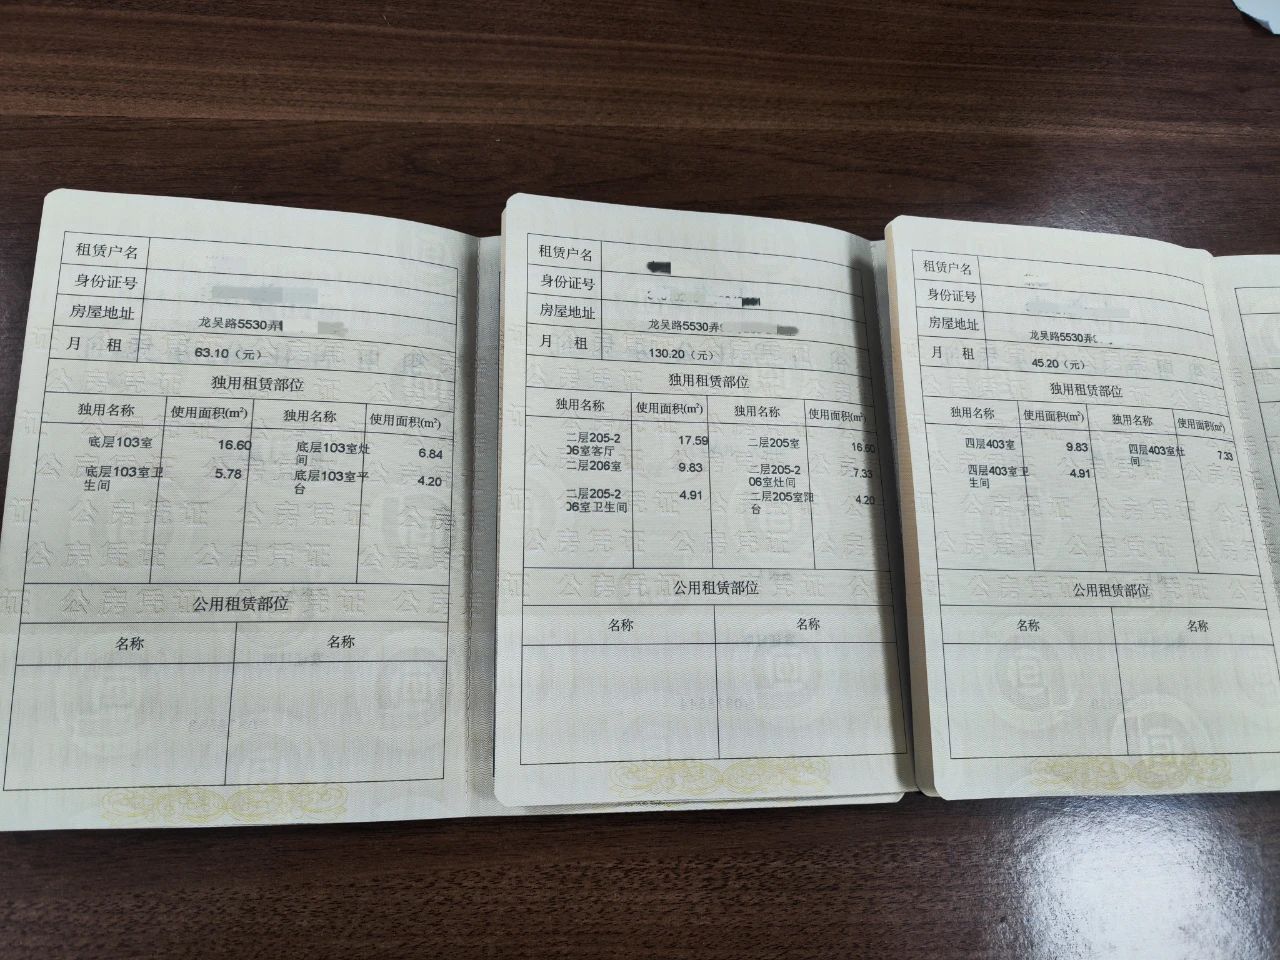 租赁户名
身份证号
房屋地址 龙吴路5530弄
月 租 63.10（元）
独用租赁部位
独用名称 使用面积(m²) 独用名称 使用面积(m²)
底层103室 16.60 底层103室灶间 6.84
底层103室卫生间 5.78 底层103室平台 4.20
公用租赁部位
名称 名称
租赁户名
身份证号
房屋地址 龙吴路5530弄
月 租 130.20（元）
独用租赁部位
独用名称 使用面积(m²) 独用名称 使用面积(m²)
二层205-206室客厅 17.59 二层205室 16.60
二层206室 9.83 二层205-206室灶间 7.33
二层205-206室卫生间 4.91 二层205室阳台 4.20
公用租赁部位
名称 名称
租赁户名
身份证号
房屋地址 龙吴路5530弄
月 租 45.20（元）
独用租赁部位
独用名称 使用面积(m²) 独用名称 使用面积(m²)
四层403室 9.83 四层403室灶间 7.33
四层403室卫生间 4.91
公用租赁部位
名称 名称